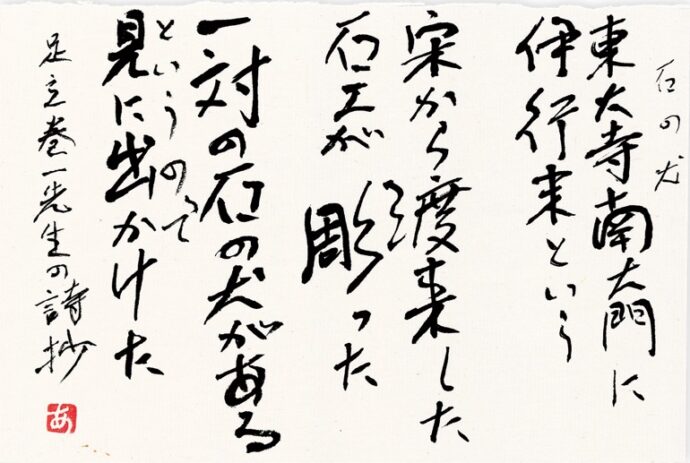 石の犬
東大寺南大門に
伊行末という
宋から渡来した
石工が 彫った
一対の石の犬がある
というので
見に出かけた
足立巻一先生の詩抄
あ